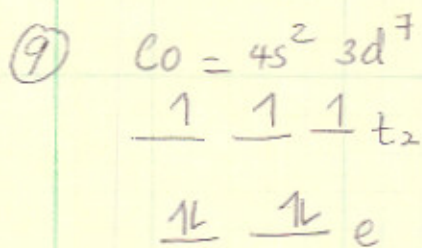 ⑨ Co = 4s² 3d⁷
1 1 1 t₂
1L 1L e